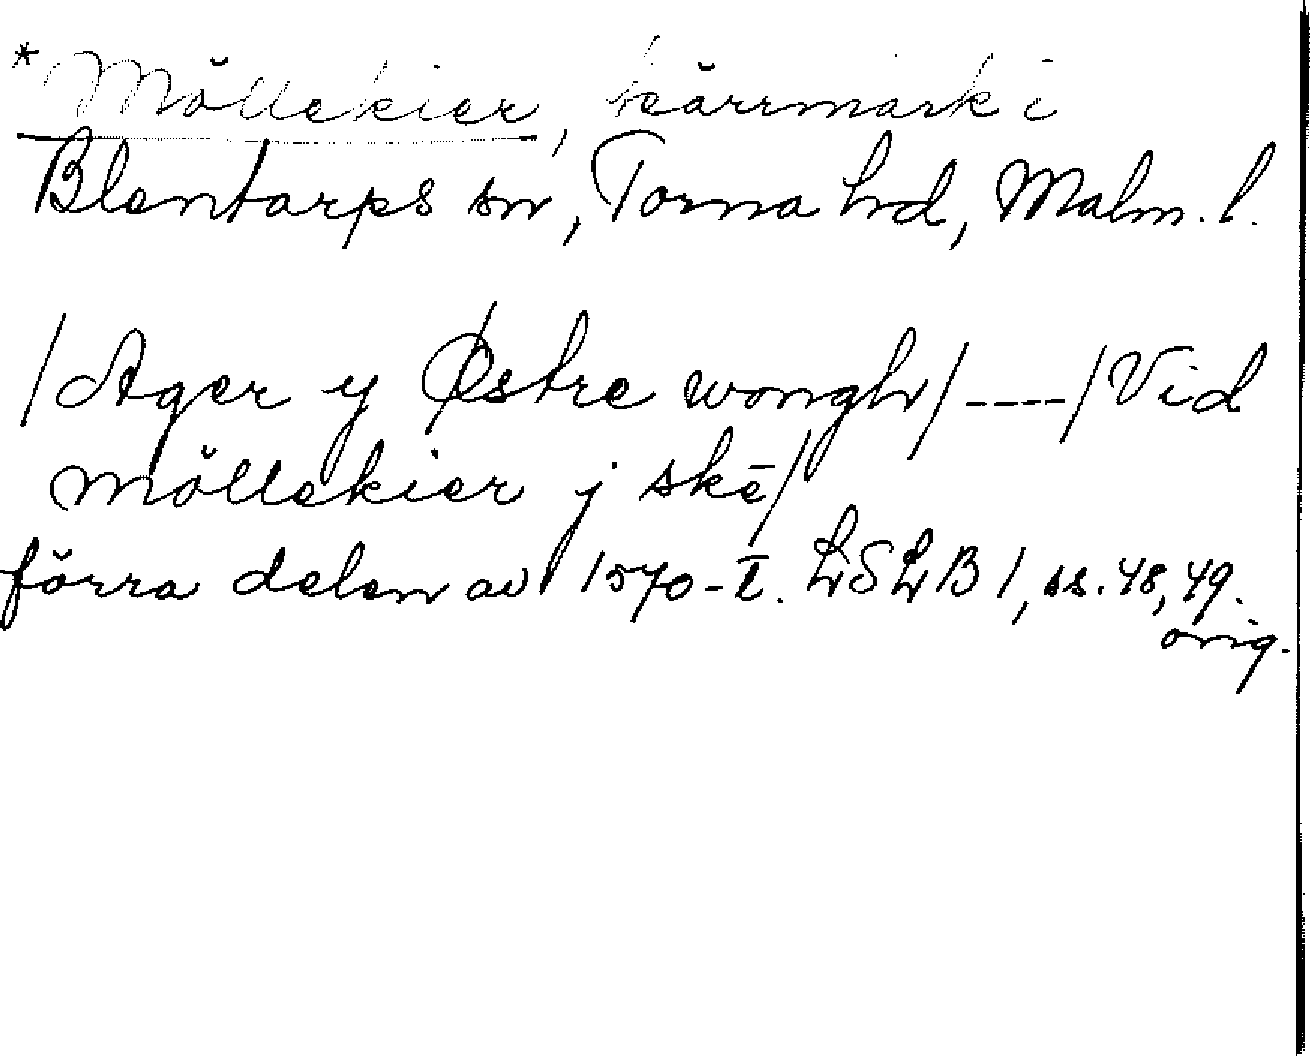 *Möllekier, kärrmark i
Blentarps sn, Torna hd, Malm. l.
/Ager y Østre wongh/----/Vid
möllekier j skē/
förra delen av 1570-t. LSLB 1, ss. 48, 49.
orig.